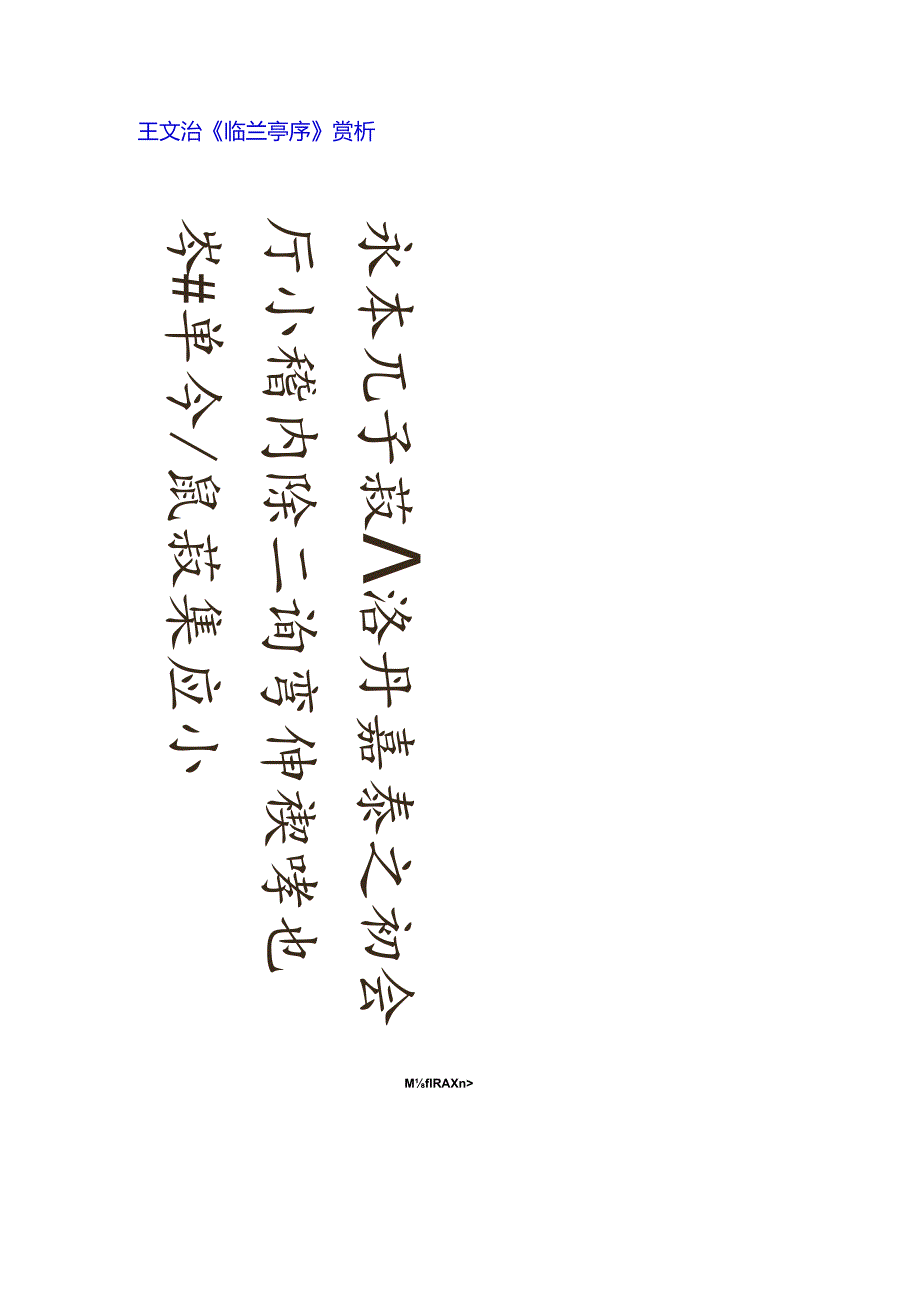 王文治《临兰亭序》赏析
永本兀子菽Λ洛丹嘉泰之初会
厅小稽内除二询弯伸禊哮也
岑#单今/鼠菽集应小
M⅛fIRAXn>